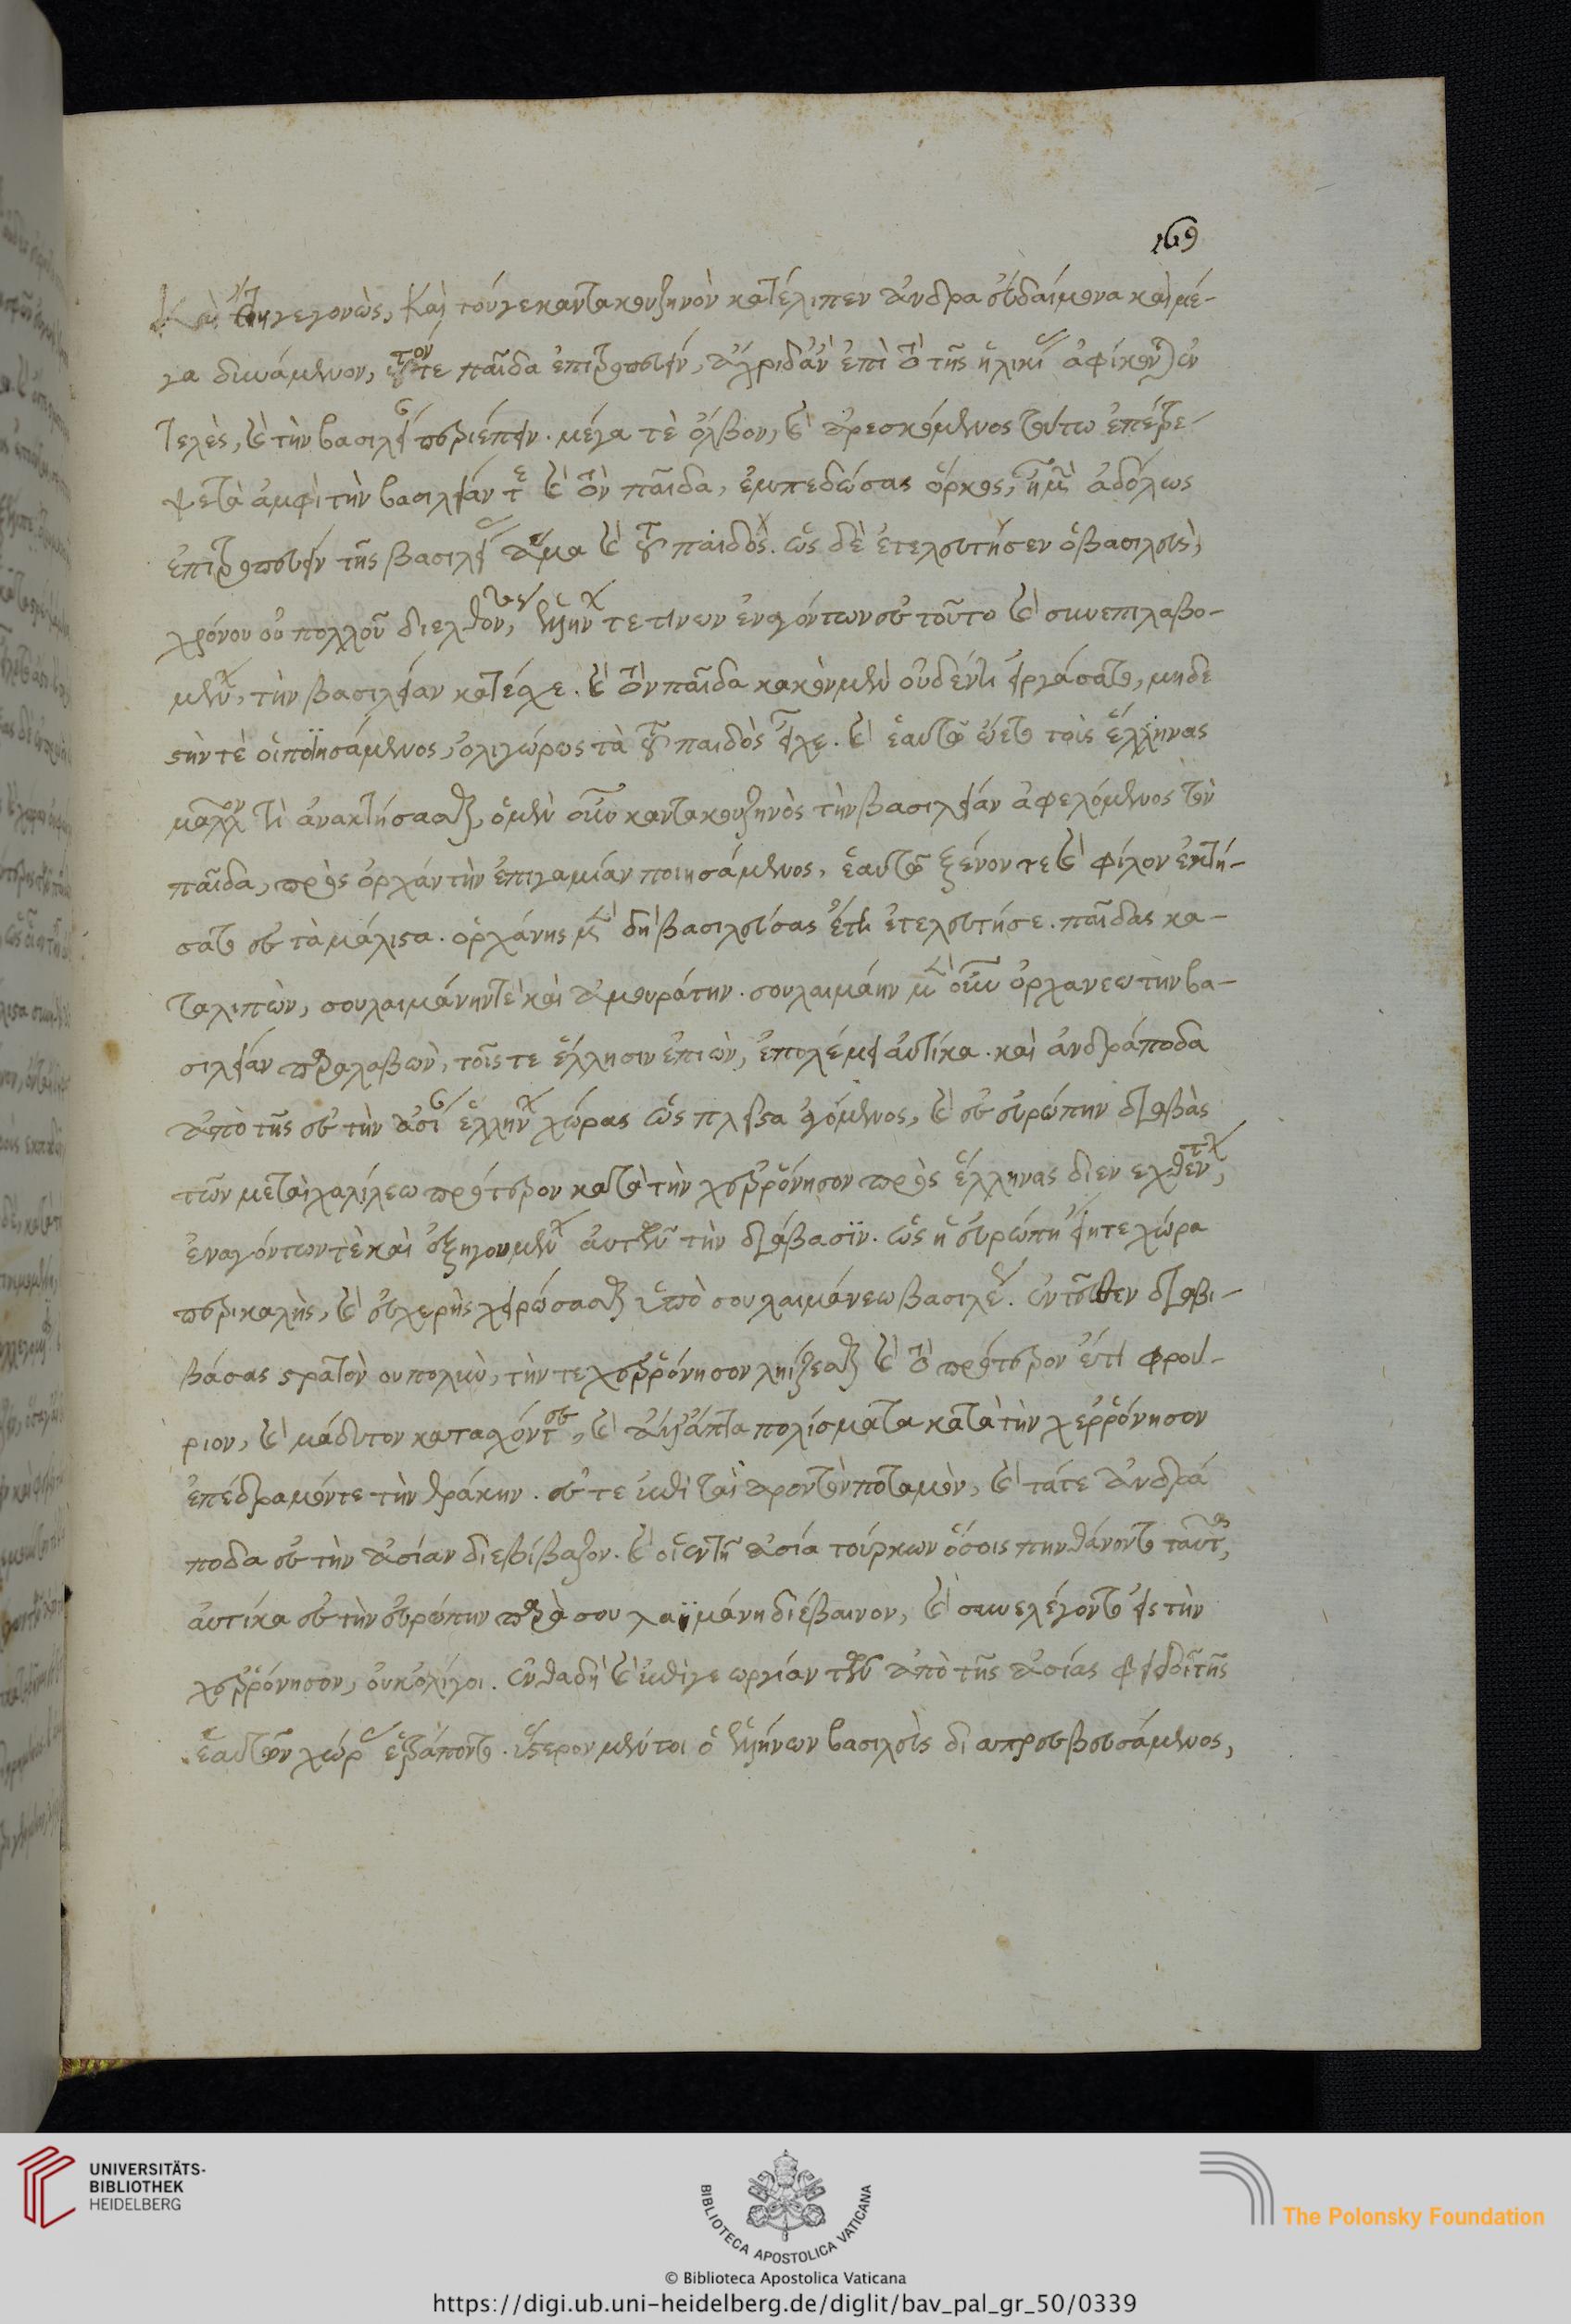 169
καὶ ἔτη γεγονὼς, καὶ τόν γε καντακουζηνὸν κατέλιπεν ἄνδρα εὐδαίμονα καὶ μέ-
γα δυνάμενον, τόν τε παῖδα ἐπιτροπεύειν, ἄχρις ἂν ἐπὶ τὸ τῆς ἡλικίας ἀφίκηται ἐν
τελὲς, καὶ τὴν βασιλείαν περιέπειν. μέγα τὲ ὄλβον, καὶ ἀρεσκόμενος τούτω ἐπέτρε-
ψε τὰ ἀμφὶ τὴν βασιλείαν τε καὶ τὸν παῖδα, ἐμπεδώσας ὅρκους, ἦ μὴν ἀδόλως
ἐπιτροπεύειν τῆς βασιλείας ἅμα καὶ τοῦ παιδός. ὡς δὲ ἐτελεύτησεν ὁ βασιλεὺς,
χρόνου οὐ πολλοῦ διελθόντος, ἑλλήνων τε τινων ἐναγόντων ἐς τοῦτο καὶ συνεπιλαβο-
μένων, τὴν βασιλείαν κατέσχε. καὶ τὸν παῖδα κακὸν μὲν οὐδέν τι εἰργάσατο, μηδε
στήν τὲ οἱ ποϊησάμενος, ὀλιγώρως τὰ τοῦ παιδὸς εἶχε. καὶ ἑαυτῷ ᾤετο τοὺς ἕλληνας
μᾶλλόν τι ἀνακτήσασθαι, ὁ μὲν οὖν καντακουζηνὸς τὴν βασιλείαν ἀφελόμενος τὸν
παῖδα, πρὸς ὀρχάνην τὴν ἐπιγαμίαν ποιησάμενος, ἑαυτῷ ξένον τε καὶ φίλον ἐκτή-
σατο ἐς τὰ μάλιστα. ὀρχάνης μὲν δὴ βασιλεύσας ἔτη ἐτελεύτησε. παῖδας κα-
ταλιπὼν, σουλαιμάνην τὲ καὶ ἀμουράτην. σουλαιμάην μὲν οὖν ὀρχανεω τὴν βα-
σιλείαν παραλαβὼν, τοῖς τε ἕλλησιν ἐπιὼν, ἐπολέμει αὐτίκα. καὶ ἀνδράποδα
ἀπὸ τῆς ἐς τὴν ἀσίαν ἑλλήνων χώρας ὡς πλεῖστα ἀγόμενος, καὶ ἐς εὐρώπην διαβὰς
τῶν μετὰ χαλίλεω πρότερον κατὰ τὴν χερρόνησον πρὸς ἕλληνας διενελθέντων,
ἐναγόντων τὲ καὶ ἐξηγουμένων αὐτῶν τὴν διάβασϊν. ὡς ἡ εὐρώπη εἴη τε χώρα
περικαλὴς, καὶ εὐχερὴς χειρώσασθαι ὑπὸ σουλαιμάνεω βασιλέως. ἐντεῦθεν διαβι-
βάσας στρατὸν οὐ πολὺν, τήν τε χερρόνησον ληίζεσθαι καὶ τὸ πρότερον ἔτι φρού-
ριον, καὶ μάδυτον κατασχόντες, καὶ πολίσματα κατὰ τὴν χερρόνησον
ἐπέδραμόν τε τὴν θράκην. ἔς τε ἐπὶ ταίαρον τὸν ποταμὸν, καὶ τά τε ἀνδρά
ποδα ἐς τὴν ἀσίαν διεβίβαζον. καὶ οἱ ἐν τῇ ἀσία τούρκων ὅσοις πυνθάνοντο ταῦτα,
αὐτίκα ἐς τὴν εὐρώπην παρὰ σουλαϊμάνη διέβαινον, καὶ συνελέγοντο εἰς τὴν
χερρόνησον, οὐκ ὀλίγοι. ἔνθα δὴ καὶ ἐπὶ γεωργίαν τῶν ἀπὸ τῆς ἀσίας τῆς
ἑαυτῶν χώρας ἐτράποντο. ὕστερον μέντοι ὁ ἑλλήνων βασιλεὺς διαπρεσβευσάμενος,
UNIVERSITÄTS-
BIBLIOTHEK
HEIDELBERG
BIBLIOTECA APOSTOLICA VATICANA
The Polonsky Foundation
© Biblioteca Apostolica Vaticana
https://digi.ub.uni-heidelberg.de/diglit/bav_pal_gr_50/0339